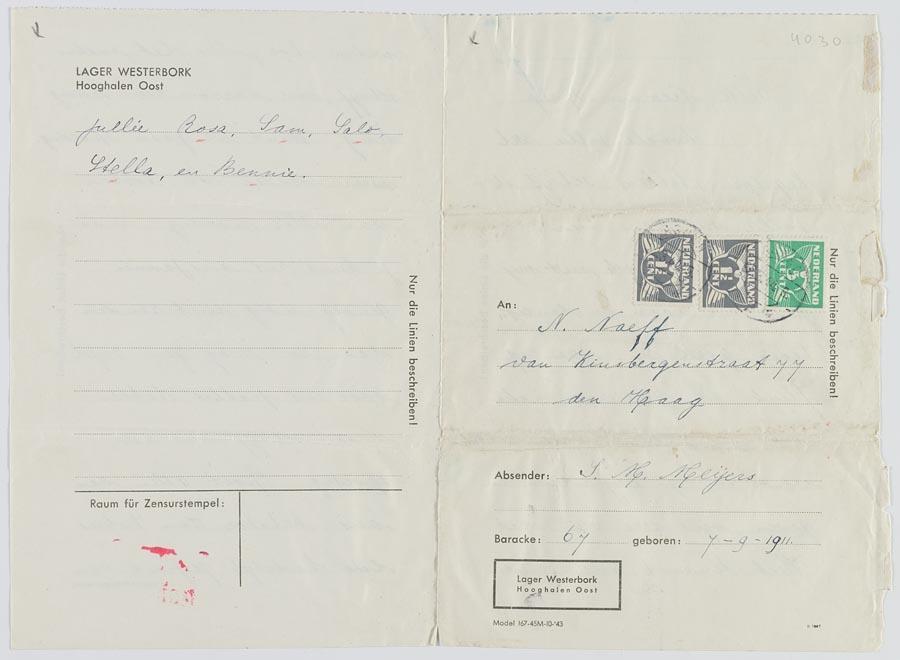 4030
LAGER WESTERBORK
Hooghalen Oost
Jullie Rosa, Sam, Salo,
Stella, en Bennie.
Nur die Linien beschreiben!
Raum für Zensurstempel:
NEDERLAND
1½
CENT
NEDERLAND
1½
CENT
NEDERLAND
5
CENT
Nur die Linien beschreiben!
An:
N. Naeff
van Kinsbergenstraat 77
den Haag
Absender: S. M. Meijers
Baracke: 67 geboren: 7-9-1911.
Lager Westerbork
Hooghalen Oost
Model 167-45M-10-'43